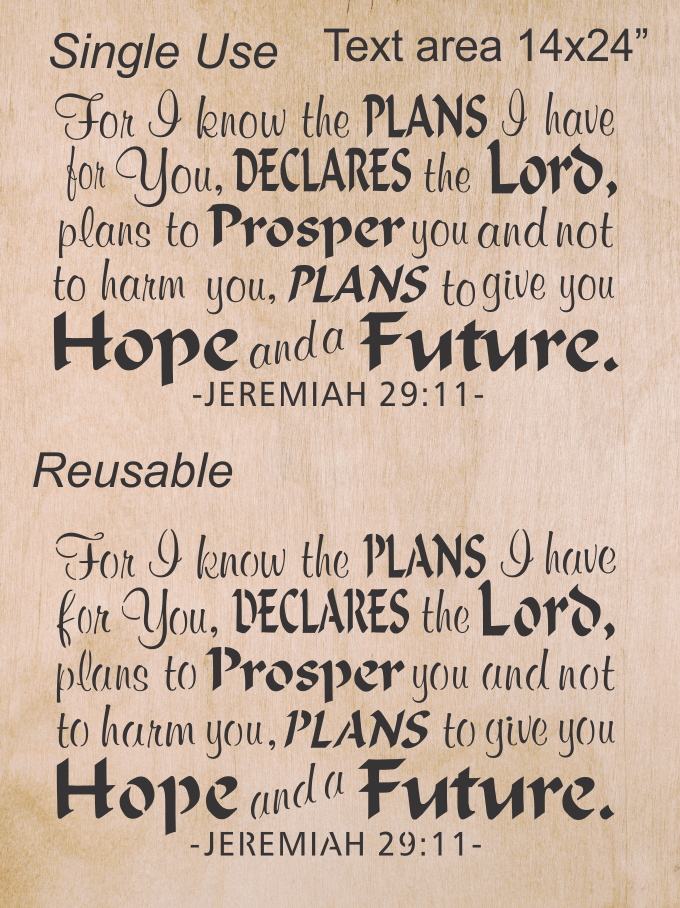 Single Use
Text area 14x24”
For I know the PLANS I have
for You, DECLARES the Lord,
plans to Prosper you and not
to harm you, PLANS to give you
Hope and a Future.
-JEREMIAH 29:11-
Reusable
For I know the PLANS I have
for You, DECLARES the Lord,
plans to Prosper you and not
to harm you, PLANS to give you
Hope and a Future.
-JEREMIAH 29:11-